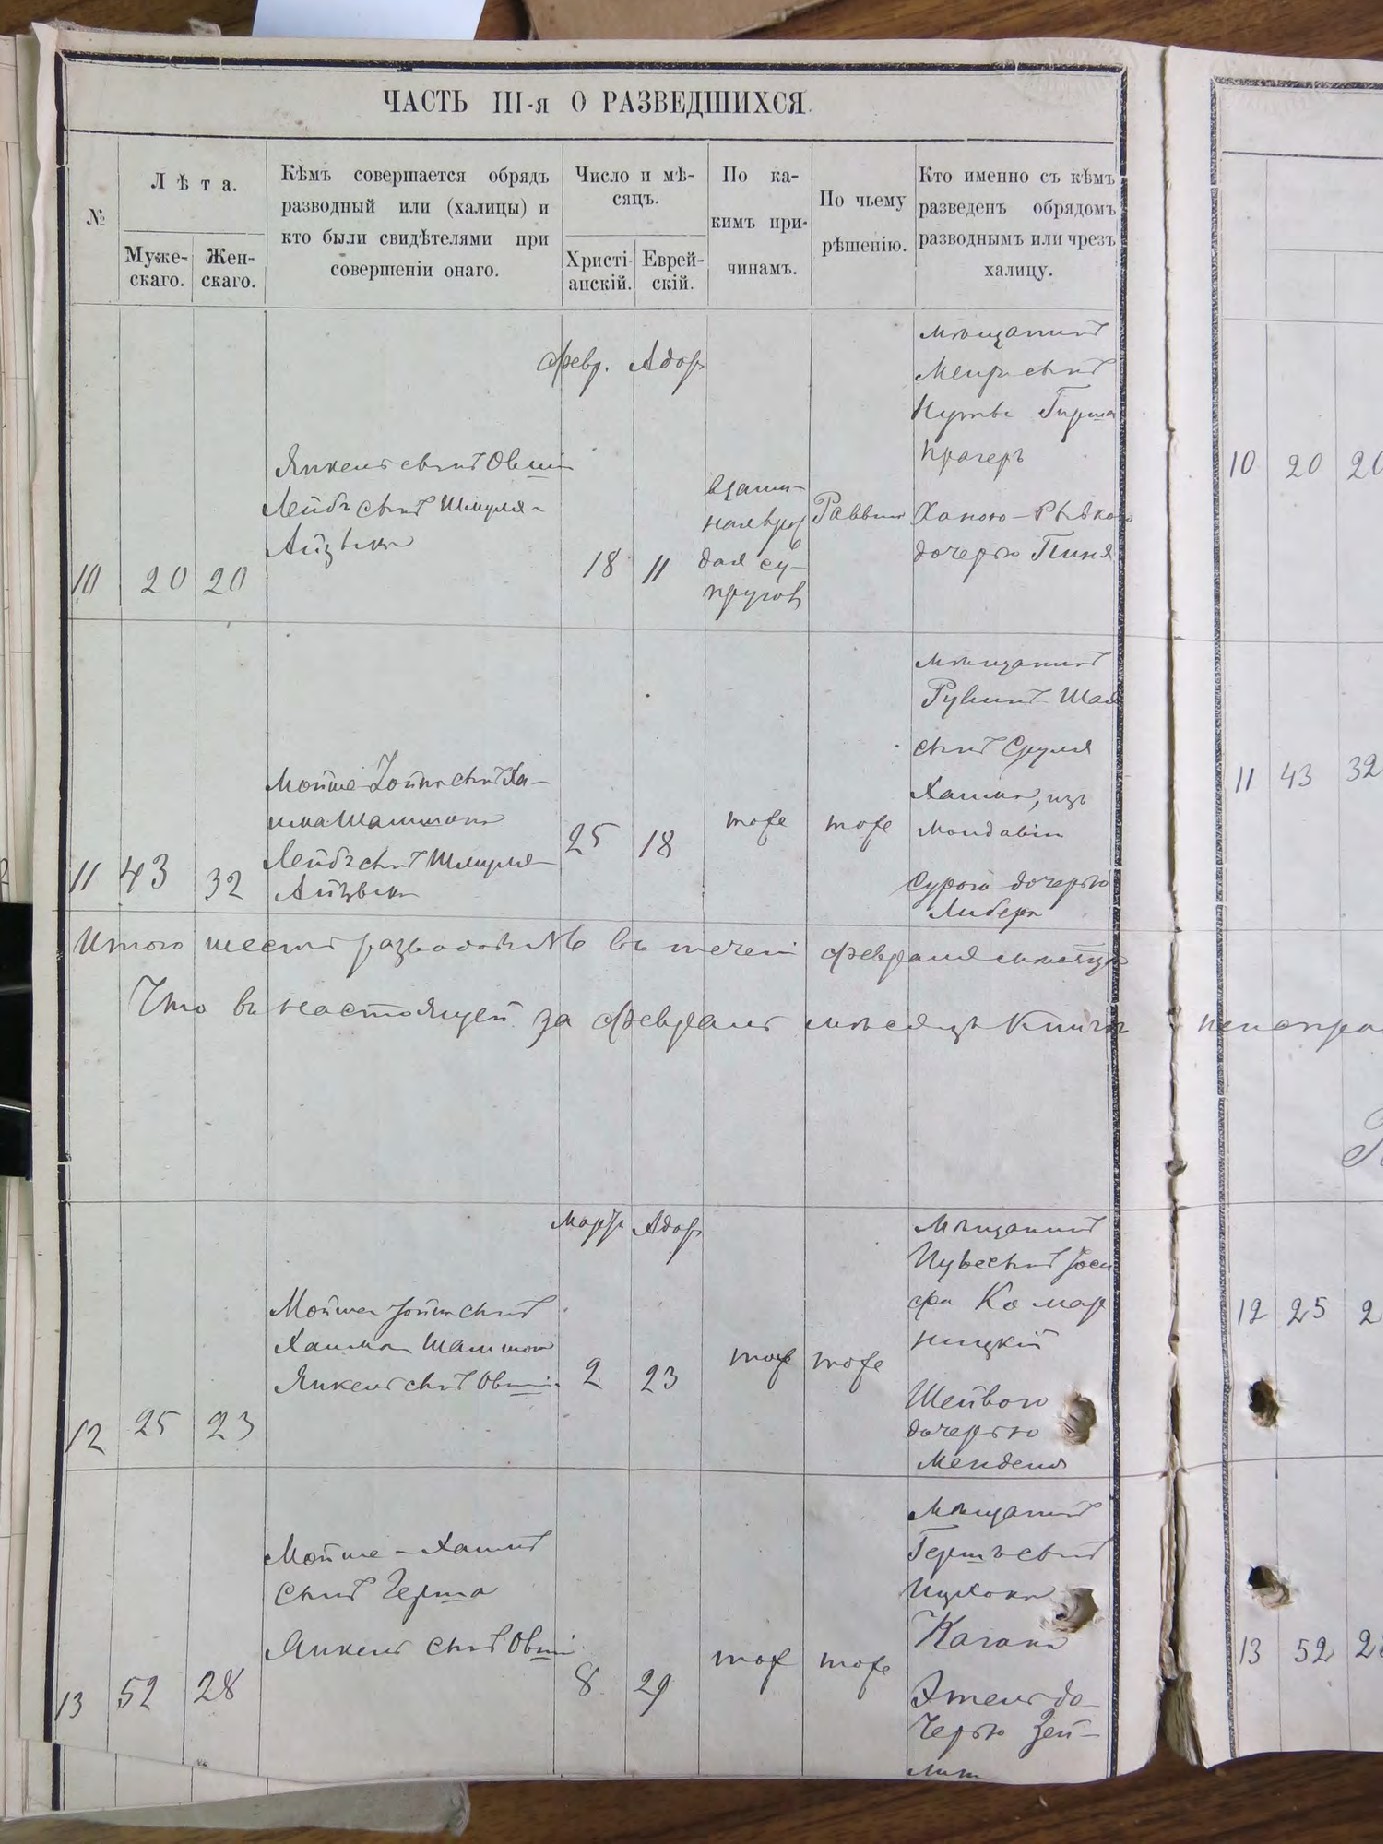 ЧАСТЬ III-я О РАЗВЕДШИХСЯ.
№
Лѣта.
Муже-
скаго.
Жен-
скаго.
Кѣмъ совершается обрядъ
разводный или (халицы) и
кто были свидѣтелями при
совершеніи онаго.
Число и мѣ-
сяцъ.
Христі-
анскій.
Еврей-
скій.
По ка-
кимъ при-
чинамъ.
По чьему
рѣшенію.
Кто именно съ кѣмъ
разведенъ обрядомъ
разводнымъ или чрезъ
халицу.
10 20 20
Янкель сынъ Овши
Лейбъ сынъ Шмуля-
Айзыка
Февр. Адор
18 11
взаим-
дая су-
пруговъ
Раввин
мѣщанинъ
сынъ
Герша
Ханою-Рывкою
дочерью Пиня
10 20 20
11 43 32
Мойше сынъ Ха-
има
Лейбъ сынъ Шмуля-
Айзыка
25 18
тоже
тоже
мѣщанинъ
Рувинъ Шая
сынъ Сруля
из
Сурою дочерью
Либера
11 43 32
Итого шесть разводовъ № 6 въ течен февраля мѣсяца
Что въ настоящей за февраль мѣсяцъ книги
12 25 23
Мойше сынъ
Хаима
Янкель сынъ Овши
Мартъ Адор
2 23
тоже
тоже
Мѣщанинъ
сынъ Іоси
фа Комар
ницкій
Шейвою
дочерью
Менделя
12 25 2
13 52 28
Мойше-Хаимъ
сынъ Герша
Янкель сынъ Овши
8 29
тоже
тоже
Мѣщанинъ
Гершъ сынъ
Ицхока
Каганъ
Этель до-
черью Зей-
13 52 28